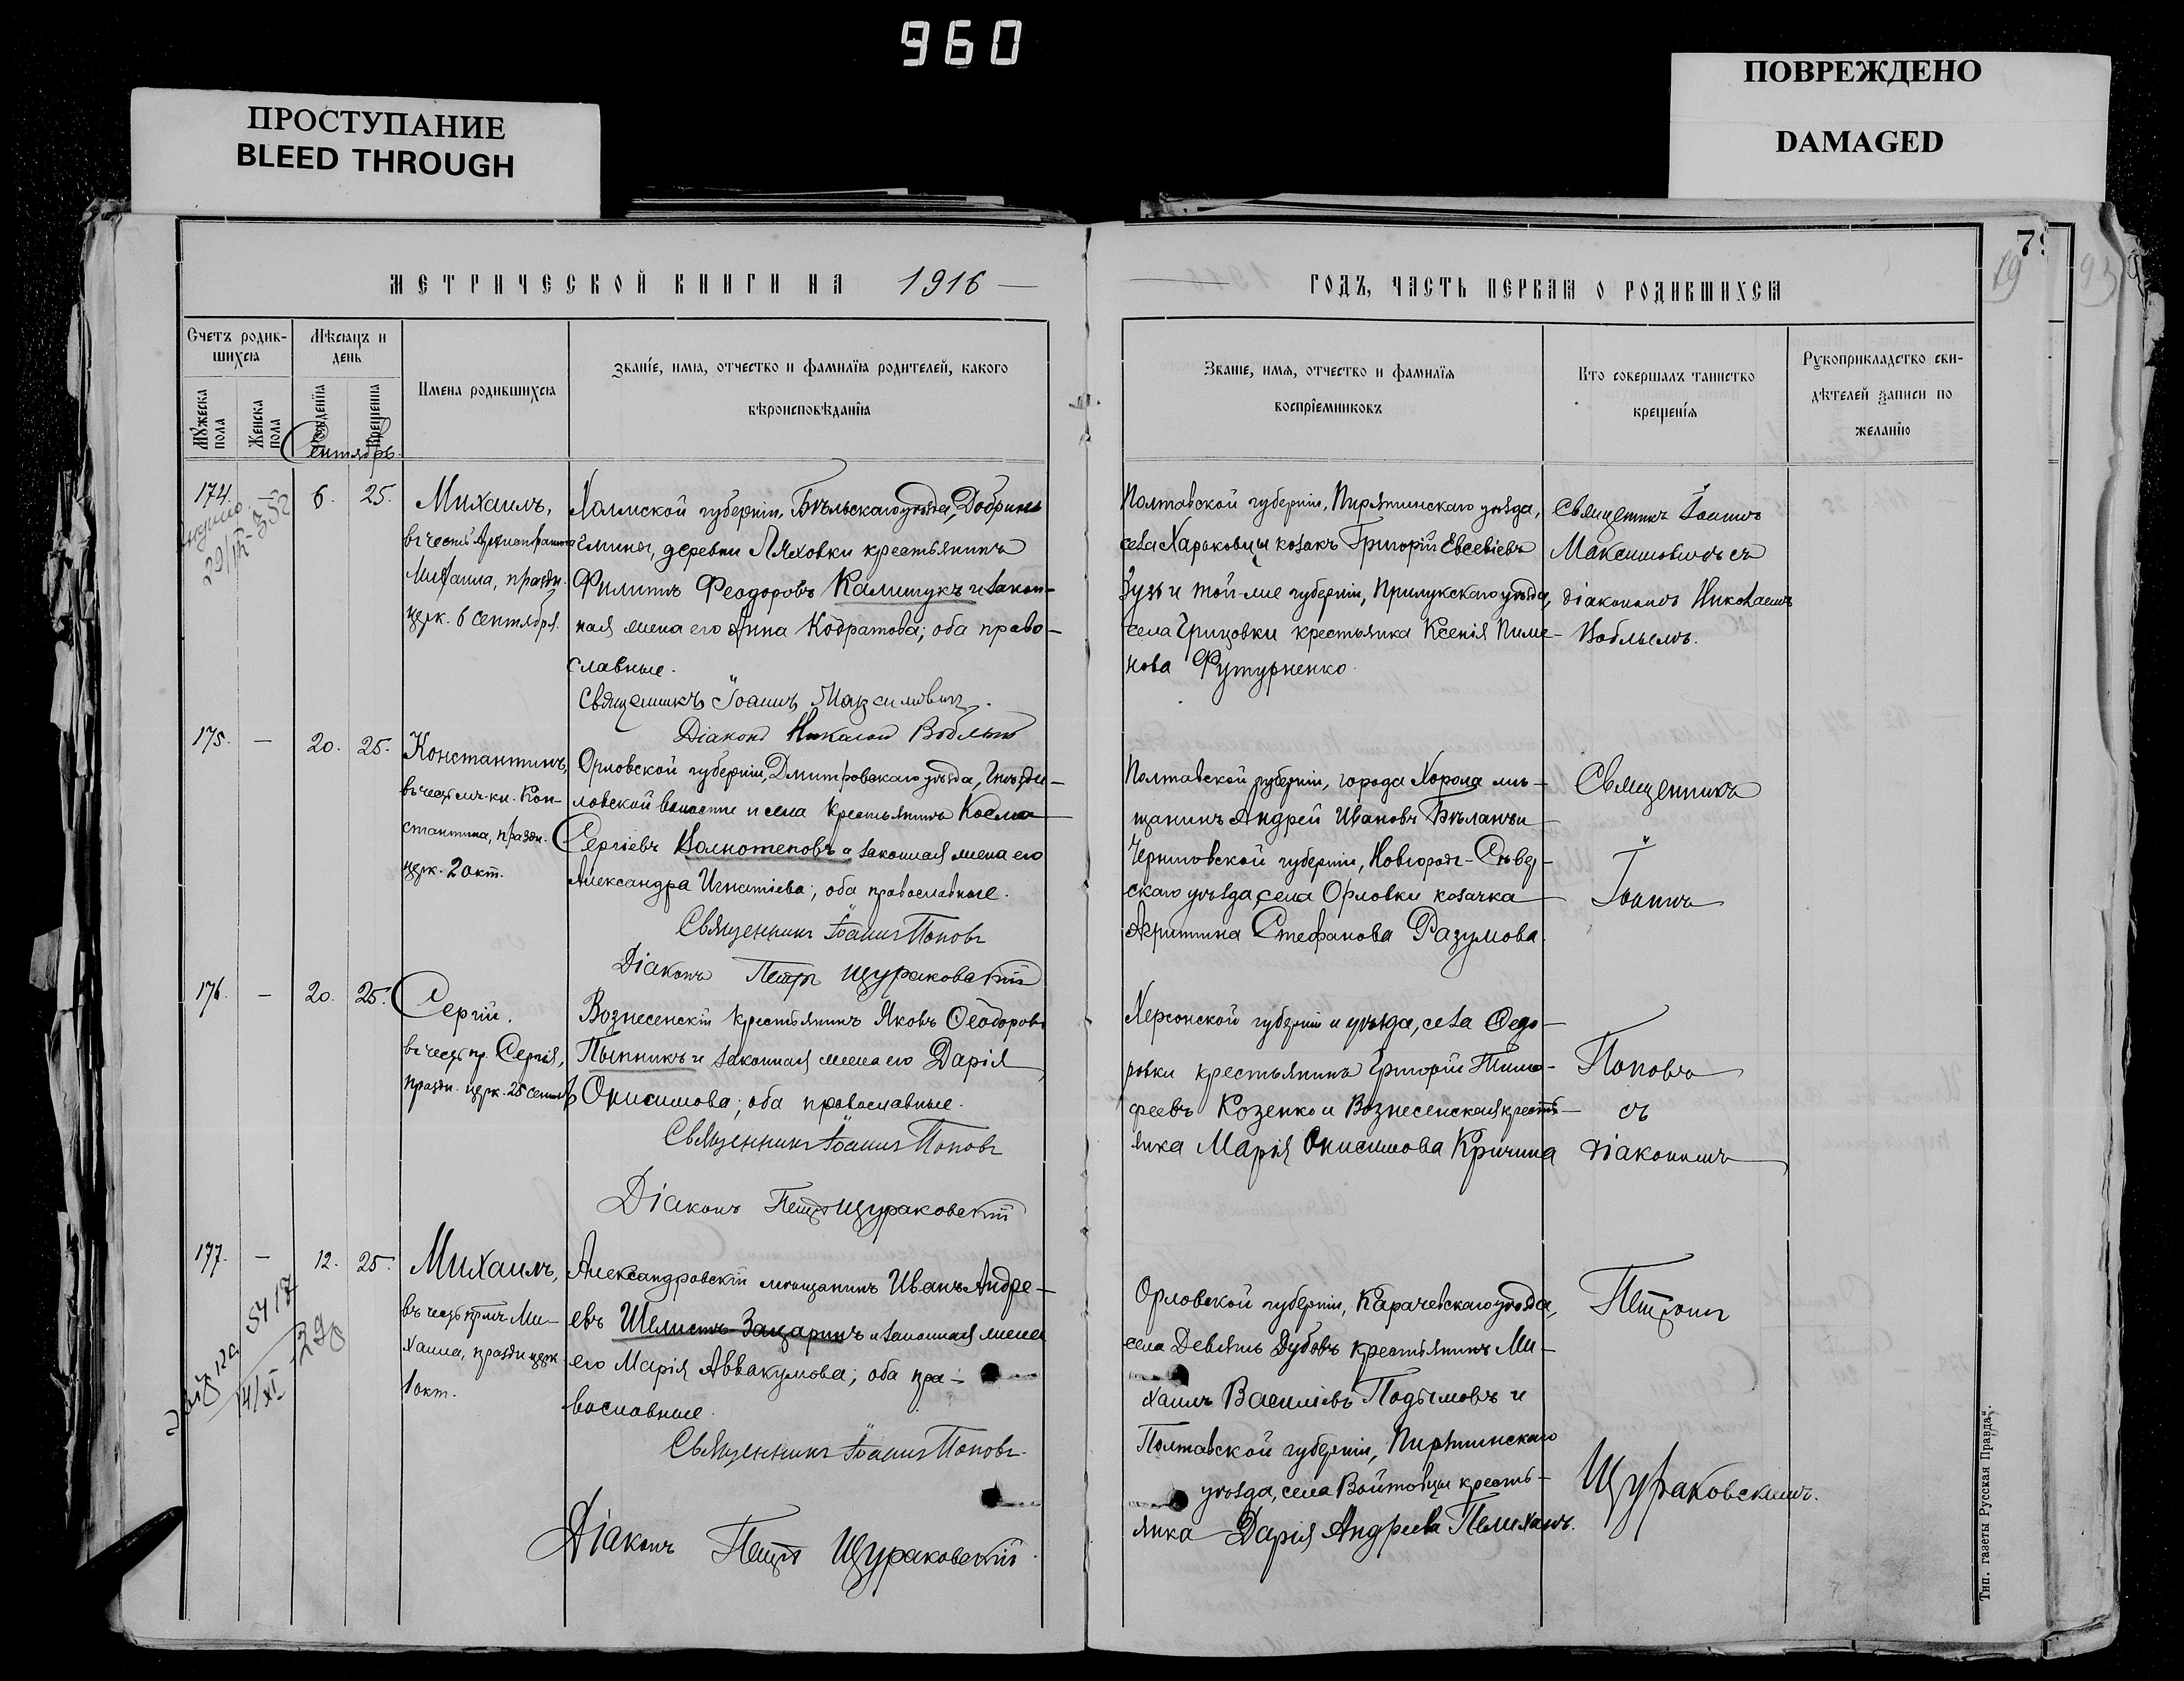 960
ПРОСТУПАНИЕ
BLEED THROUGH
ПОВРЕЖДЕНО
DAMAGED
МЕТРИЧЕСКОЙ КНИГИ НА 1916
Счетъ родив-
шихся
Мужеска пола
Женска пола
Мѣсяцъ и
день
Рожденія
Крещенія
Имена родившихся
Званіе, имя, отчество и фамилія родителей, какого
вѣроисповѣданія
Сентябрь
174. — 6. 25.
Михаилъ,
въ честь Архистратига
Михаила, праздн.
церк. 6 сентября.
Холмской губерніи, Бѣльскаго уѣзда, Добринь
гмины, деревни Ляховки крестьянинъ
Филиппъ Феодоровъ Калишукъ и закон-
ная жена его Анна Кодратова; оба право-
славные.
Священникъ Іоаннъ Максимовичъ.
Діаконъ Николай Воблый
175. — 20. 25.
Константинъ,
въ честь кн. Кон-
стантина, праздн.
церк. 2 окт.
Орловской губерніи, Дмитровскаго уѣзда,
ловской волости и села крестьянинъ Косма
Сергіевъ и законная жена его
Александра Игнатіева; оба православные.
Священникъ Іоаннъ Поповъ
Діаконъ Петръ Щураковскій
176. — 20. 25.
Сергій.
въ честь пр. Сергія,
праздн. церк. 25 сент.
Вознесенскій крестьянинъ Яковъ Ѳеодоровъ
Пыпникъ и законная жена его Дарія
Онисимова; оба православные.
Священникъ Іоаннъ Поповъ
Діаконъ Петръ Щураковскій
177. — 12. 25.
Михаилъ,
въ честь Ми-
хаила, праздн. церк.
1 окт.
Александровскій мѣщанинъ Иванъ Андре-
евъ и законная жена
его Марія Аввакумова; оба пра-
вославные.
Священникъ Іоаннъ Поповъ.
Діаконъ Петръ Щураковскій.
ГОДЪ, ЧАСТЬ ПЕРВАЯ О РОДИВШИХСЯ
79
93
Званіе, имя, отчество и фамилія
воспріемниковъ
Кто совершалъ таинство
крещенія
Рукоприкладство сви-
дѣтелей записи по
желанію
Полтавской губерніи, Пирятинскаго уѣзда,
села Харьковцы козакъ Григорій Евсевіевъ
Зузь и той-же губерніи, Прилукскаго уѣзда,
села Грицовки крестьянка Ксенія Пиме-
нова Футурненко.
Священникъ Іоаннъ
Максимовичъ съ
діакономъ Николаемъ
Воблымъ.
Полтавской губерніи, города Хорола мѣ-
щанинъ Андрей Ивановъ Бѣланъ и
Черниговской губерніи, Новгородъ-Сѣвер-
скаго уѣзда, села Орловки козачка
Акриппина Стефанова Разумова.
Священникъ
Іоаннъ
Херсонской губерніи и уѣзда, села Ѳедо-
ровки крестьянинъ Григорій Тимо-
феевъ Козенко и Вознесенская кресть-
янка Марія Онисимова Кричина
Поповъ
съ
діакономъ
Орловской губерніи, Карачевскаго уѣзда,
села Девять Дубовъ крестьянинъ Ми-
хаилъ Василіевъ Подымовъ и
Полтавской губерніи, Пирятинскаго
уѣзда, села Войтовцы кресть-
янка Дарія Андреева Пелихъ.
Петромъ
Щураковскимъ.
Тип. газеты „Русская Правда“.